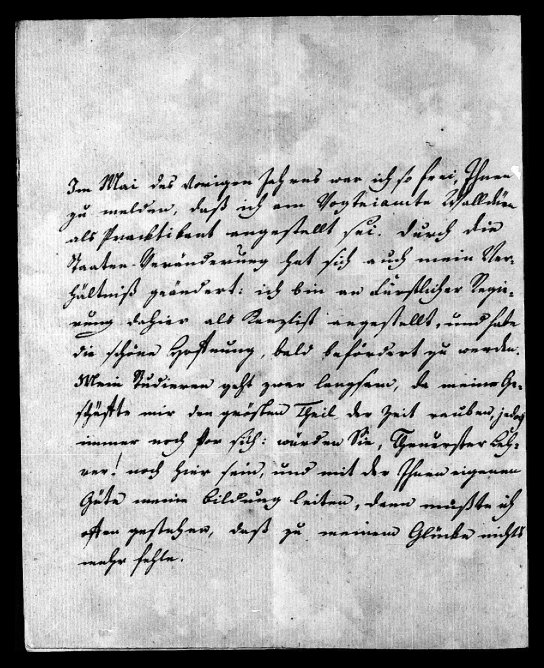 Im Mai des vorigen Jahres war ich so frei, Ihnen
zu melden, daß ich am Vogteiamte Walldürn
als Practikant angestellt sei. Durch die
Staaten-Veränderung hat sich auch mein Ver-
hältniß geändert: ich bin an Fürstlicher Regie-
rung dahier als Kanzlist angestellt, und habe
die schöne Hoffnung, bald befördert zu werden.
Mein Studieren geht zwar langsam, da meine Ge-
schäffte mir den grösten Theil der Zeit rauben, jedoch
immer noch vor sich: würden Sie, Theuerster Leh-
rer! noch hier sein, und mit der Ihnen eigenen
Güte meine Bildung leiten, dann müßte ich
offen gestehen, daß zu meinem Glücke nichts
mehr fehle.